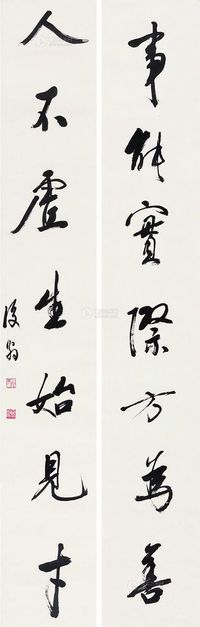 事能實際方為善
人不虛生始見才
復翁